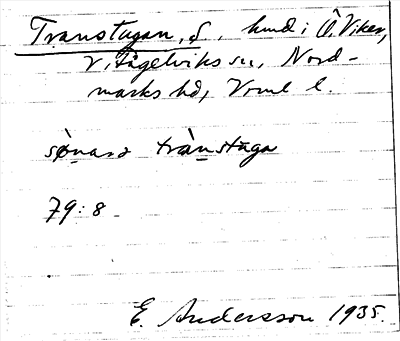 Transtugan, S, hmd i Ö. Viker,
V. Fågelviks sn, Nord-
marks hd, Vrml l.
trànstuga
79:8
E. Andersson 1935.